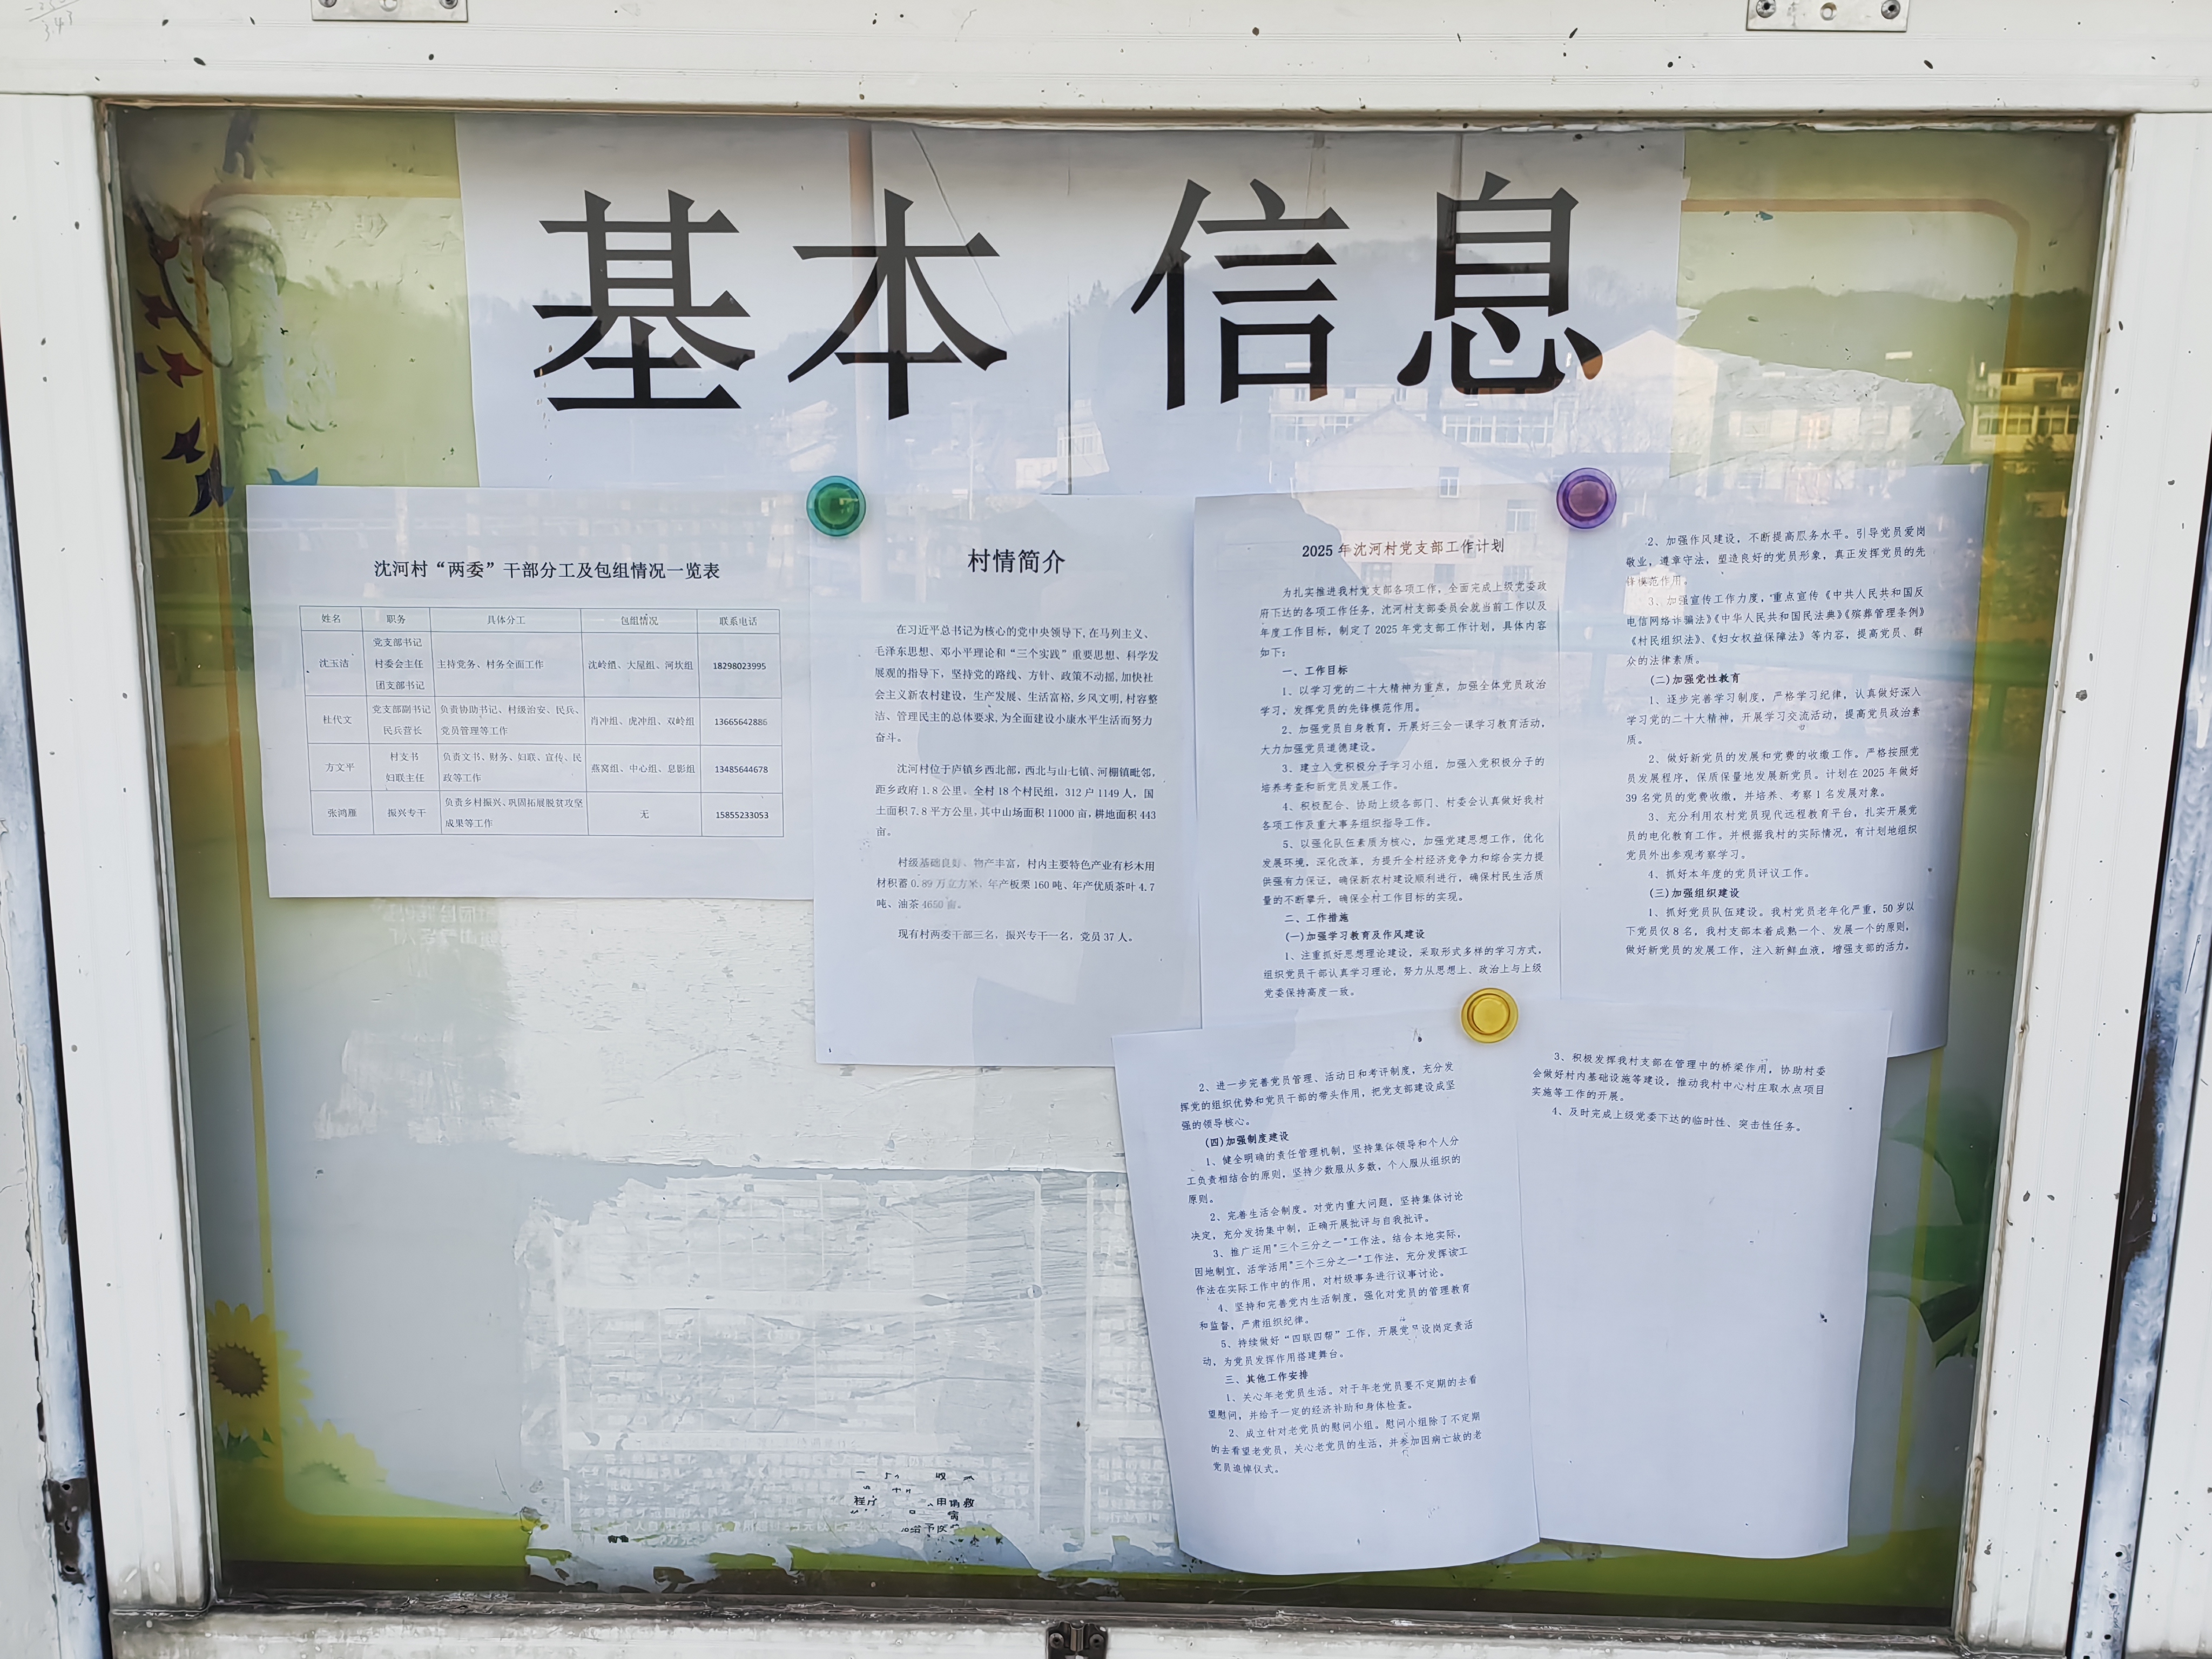 基本信息
沈河村“两委”干部分工及包组情况一览表
姓名 职务 具体分工 包组情况 联系电话
沈玉洁 党支部书记 村委会主任 团支部书记 主持党务、村务全面工作 沈岭组、大屋组、河坎组 18298023995
杜代文 党支部副书记 民兵营长 负责协助书记、村级治安、民兵、党员管理等工作 肖冲组、虎冲组、双岭组 13665642886
方文平 村支书 妇联主任 负责文书、财务、妇联、宣传、民政等工作 燕窝组、中心组、息影组 13485644678
张鸿雁 振兴专干 负责乡村振兴、巩固拓展脱贫攻坚成果等工作 无 15855233053
村情简介
在习近平总书记为核心的党中央领导下,在马列主义、
毛泽东思想、邓小平理论和“三个实践”重要思想、科学发
展观的指导下，坚持党的路线、方针、政策不动摇,加快社
会主义新农村建设，生产发展、生活富裕,乡风文明,村容整
洁、管理民主的总体要求,为全面建设小康水平生活而努力
奋斗。
沈河村位于庐镇乡西北部，西北与山七镇、河棚镇毗邻，
距乡政府1.8公里。全村18个村民组，312户1149人，国
土面积7.8平方公里,其中山场面积11000亩,耕地面积443
亩。
村级基础良好、物产丰富，村内主要特色产业有杉木用
材积蓄0.89万立方米，年产板栗160吨、年产优质茶叶4.7
吨、油茶4650亩。
现有村两委干部三名，振兴专干一名，党员37人。
2025年沈河村党支部工作计划
为扎实推进我村党支部各项工作，全面完成上级党委政
府下达的各项工作任务，沈河村支部委员会就当前工作以及
年度工作目标，制定了2025年党支部工作计划，具体内容
如下：
一、工作目标
1、以学习党的二十大精神为重点，加强全体党员政治
学习，发挥党员的先锋模范作用。
2、加强党员自身教育，开展好三会一课学习教育活动，
大力加强党员道德建设。
3、建立入党积极分子学习小组，加强入党积极分子的
培养考查和新党员发展工作。
4、积极配合、协助上级各部门、村委会认真做好我村
各项工作及重大事务组织指导工作。
5、以强化队伍素质为核心，加强党建思想工作，优化
发展环境，深化改革，为提升全村经济竞争力和综合实力提
供强有力保证，确保新农村建设顺利进行，确保村民生活质
量的不断攀升，确保全村工作目标的实现。
二、工作措施
(一)加强学习教育及作风建设
1、注重抓好思想理论建设，采取形式多样的学习方式，
组织党员干部认真学习理论，努力从思想上、政治上与上级
党委保持高度一致。
2、加强作风建设，不断提高服务水平。引导党员爱岗
敬业，遵章守法，塑造良好的党员形象，真正发挥党员的先
锋模范作用。
3、加强宣传工作力度，重点宣传《中共人民共和国反
电信网络诈骗法》《中华人民共和国民法典》《殡葬管理条例》
《村民组织法》、《妇女权益保障法》等内容，提高党员、群
众的法律素质。
(二)加强党性教育
1、逐步完善学习制度，严格学习纪律，认真做好深入
学习党的二十大精神，开展学习交流活动，提高党员政治素
质。
2、做好新党员的发展和党费的收缴工作。严格按照党
员发展程序，保质保量地发展新党员。计划在2025年做好
39名党员的党费收缴，并培养、考察1名发展对象。
3、充分利用农村党员现代远程教育平台，扎实开展党
员的电化教育工作。并根据我村的实际情况，有计划地组织
党员外出参观考察学习。
4、抓好本年度的党员评议工作。
(三)加强组织建设
1、抓好党员队伍建设。我村党员老年化严重，50岁以
下党员仅8名，我村支部本着成熟一个、发展一个的原则，
做好新党员的发展工作，注入新鲜血液，增强支部的活力。
2、进一步完善党员管理、活动日和考评制度，充分发
挥党的组织优势和党员干部的带头作用，把党支部建设成坚
强的领导核心。
(四)加强制度建设
1、健全明确的责任管理机制，坚持集体领导和个人分
工负责相结合的原则，坚持少数服从多数，个人服从组织的
原则。
2、完善生活会制度。对党内重大问题，坚持集体讨论
决定，充分发扬集中制，正确开展批评与自我批评。
3、推广运用"三个三分之一"工作法。结合本地实际，
因地制宜，活学活用"三个三分之一"工作法，充分发挥该工
作法在实际工作中的作用，对村级事务进行议事讨论。
4、坚持和完善党内生活制度，强化对党员的管理教育
和监督，严肃组织纪律。
5、持续做好“四联四帮”工作，开展党员设岗定责活
动，为党员发挥作用搭建舞台。
三、其他工作安排
1、关心年老党员生活。对于年老党员要不定期的去看
望慰问，并给予一定的经济补助和身体检查。
2、成立针对老党员的慰问小组。慰问小组除了不定期
的去看望老党员，关心老党员的生活，并参加因病亡故的老
党员追悼仪式。
3、积极发挥我村支部在管理中的桥梁作用，协助村委
会做好村内基础设施等建设，推动我村中心村庄取水点项目
实施等工作的开展。
4、及时完成上级党委下达的临时性、突击性任务。